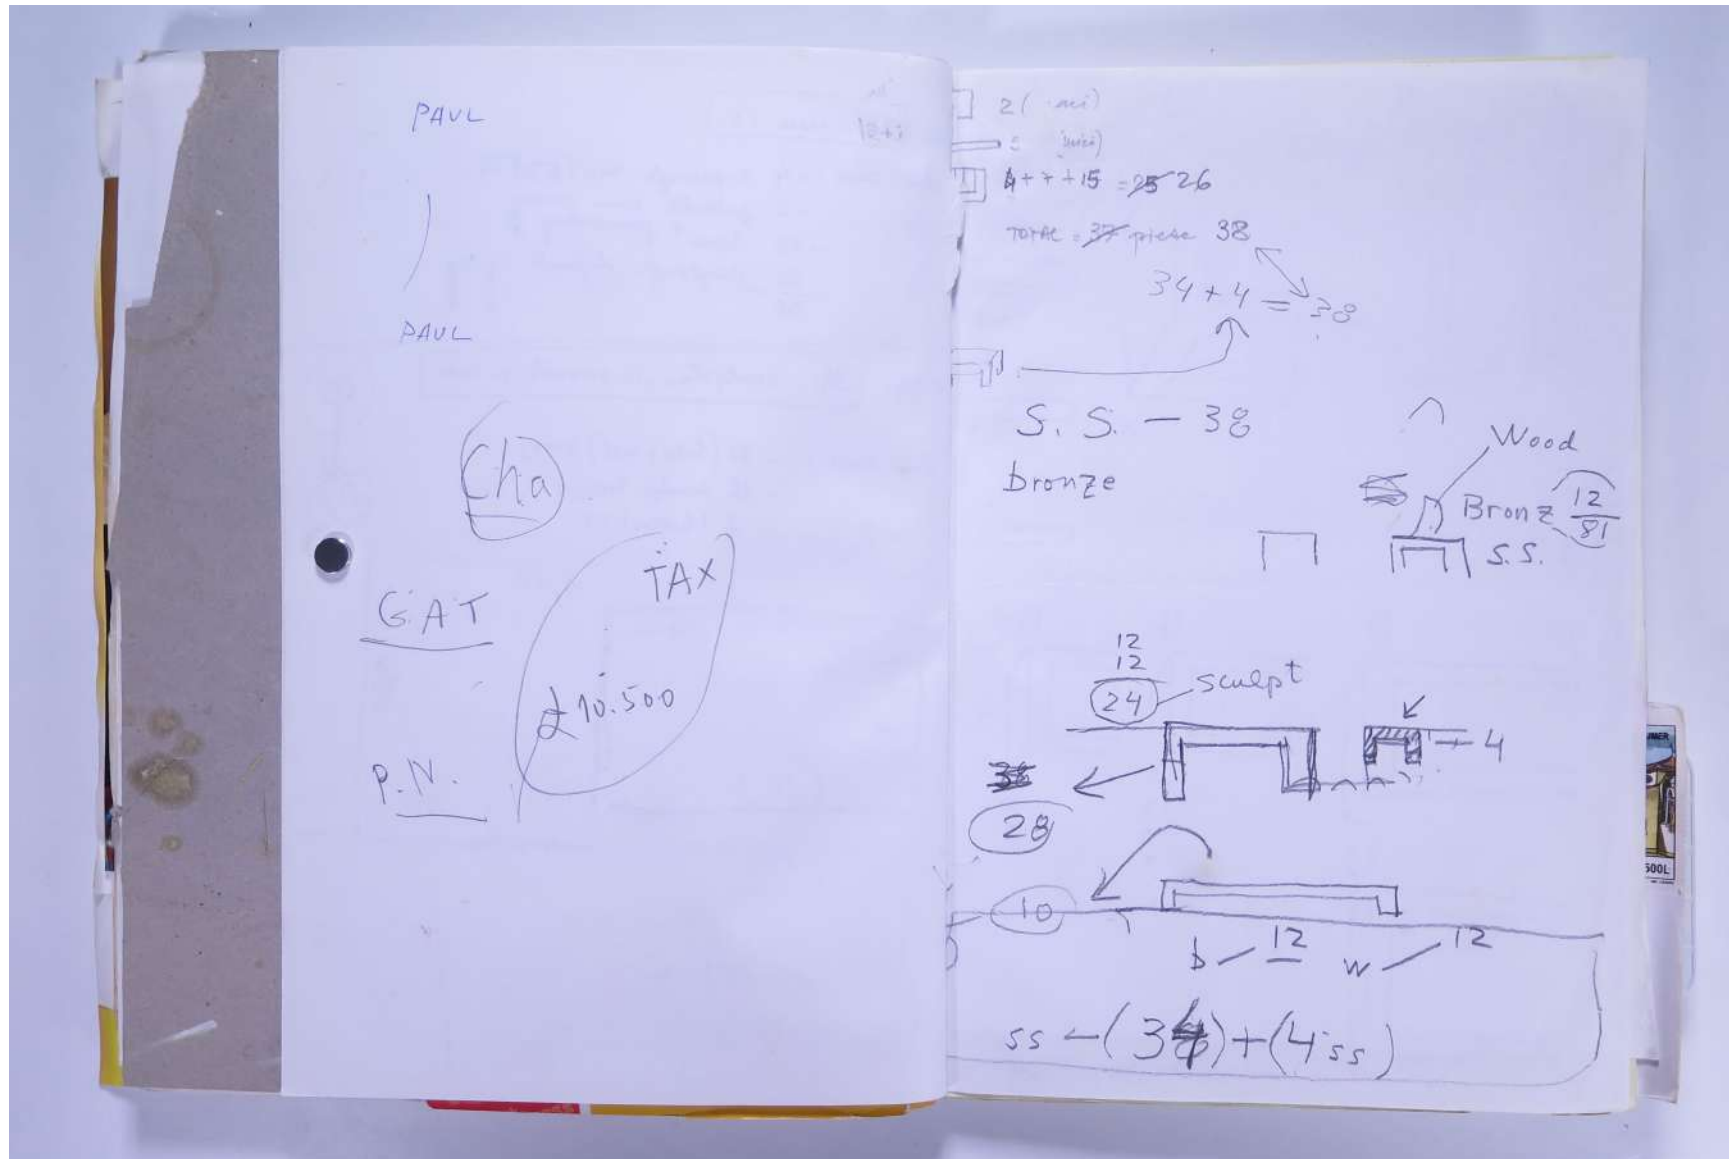 PAUL
PAUL
Cha
TAX
G.A.T
£10.500
P.N.
2 (
4 + 7 + 15 = 25 26
TOTAL = 37 piese 38
34 + 4 = 38
S. S. - 38
bronze
Wood
Bronz 12
81
S.S.
12
12
24 sculpt
4
28
10
b 12 w 12
ss (34) + (4 ss)
500L